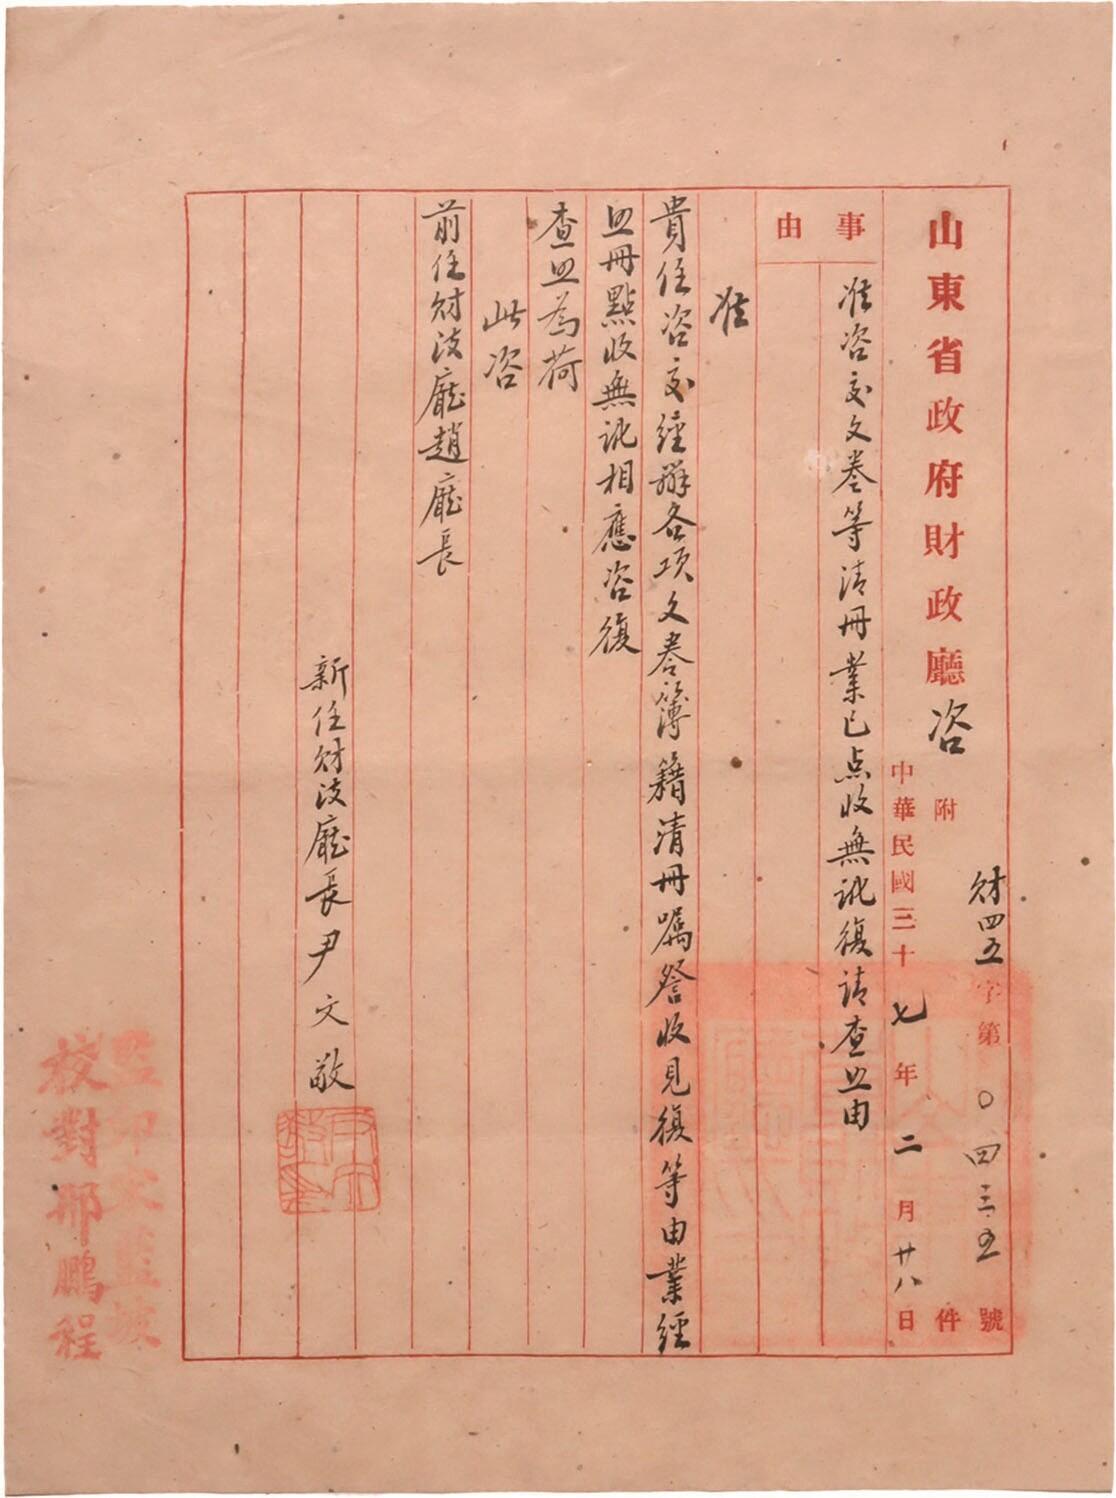 山東省政府財政廳咨
財四五字第〇四三五號
附件
中華民國三十七年二月廿八日
事由
准咨交文卷等清冊業已点收無訛復請查照由
准
貴任咨交經辦各項文卷簿籍清冊囑詧收見復等由業經
照冊點收無訛相應咨復
查照為荷
此咨
前任財政廳趙廳長
新任財政廳長尹文敬
監印宋藍坡
校對邢鵬程